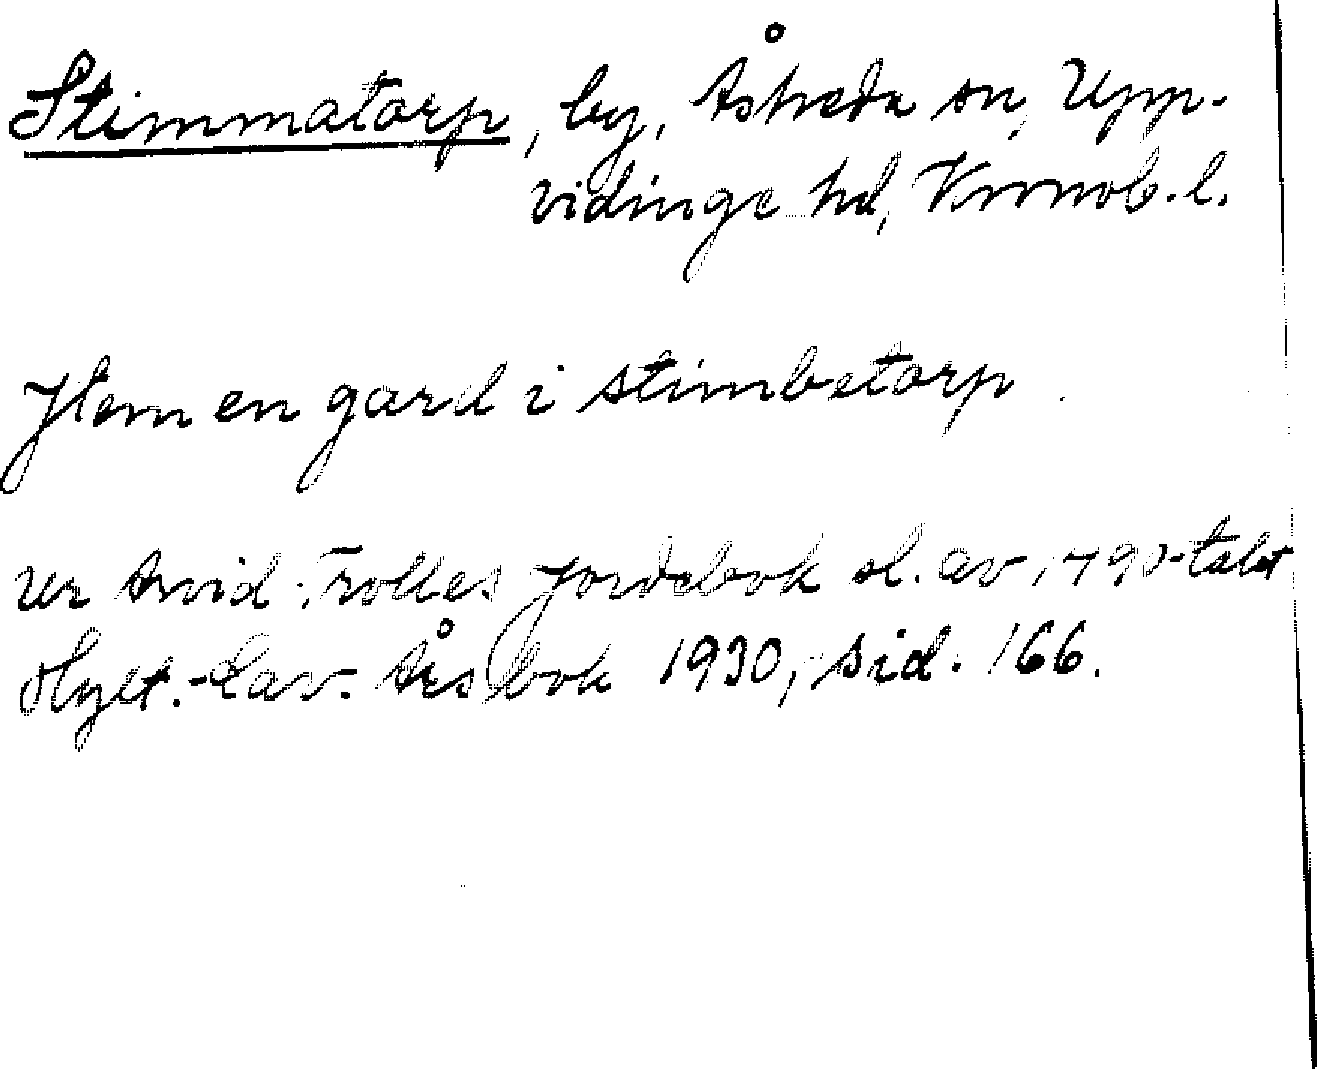 Stimmatorp, by, Åsheda sn, Upp-
vidinge hd, Kronob. l.
Item en gard i stimbetorp
Ur Arvid Trolles Jordebok sl. av 1490-talet
Hylt.-Cav. Årsbok 1930, sid. 166.